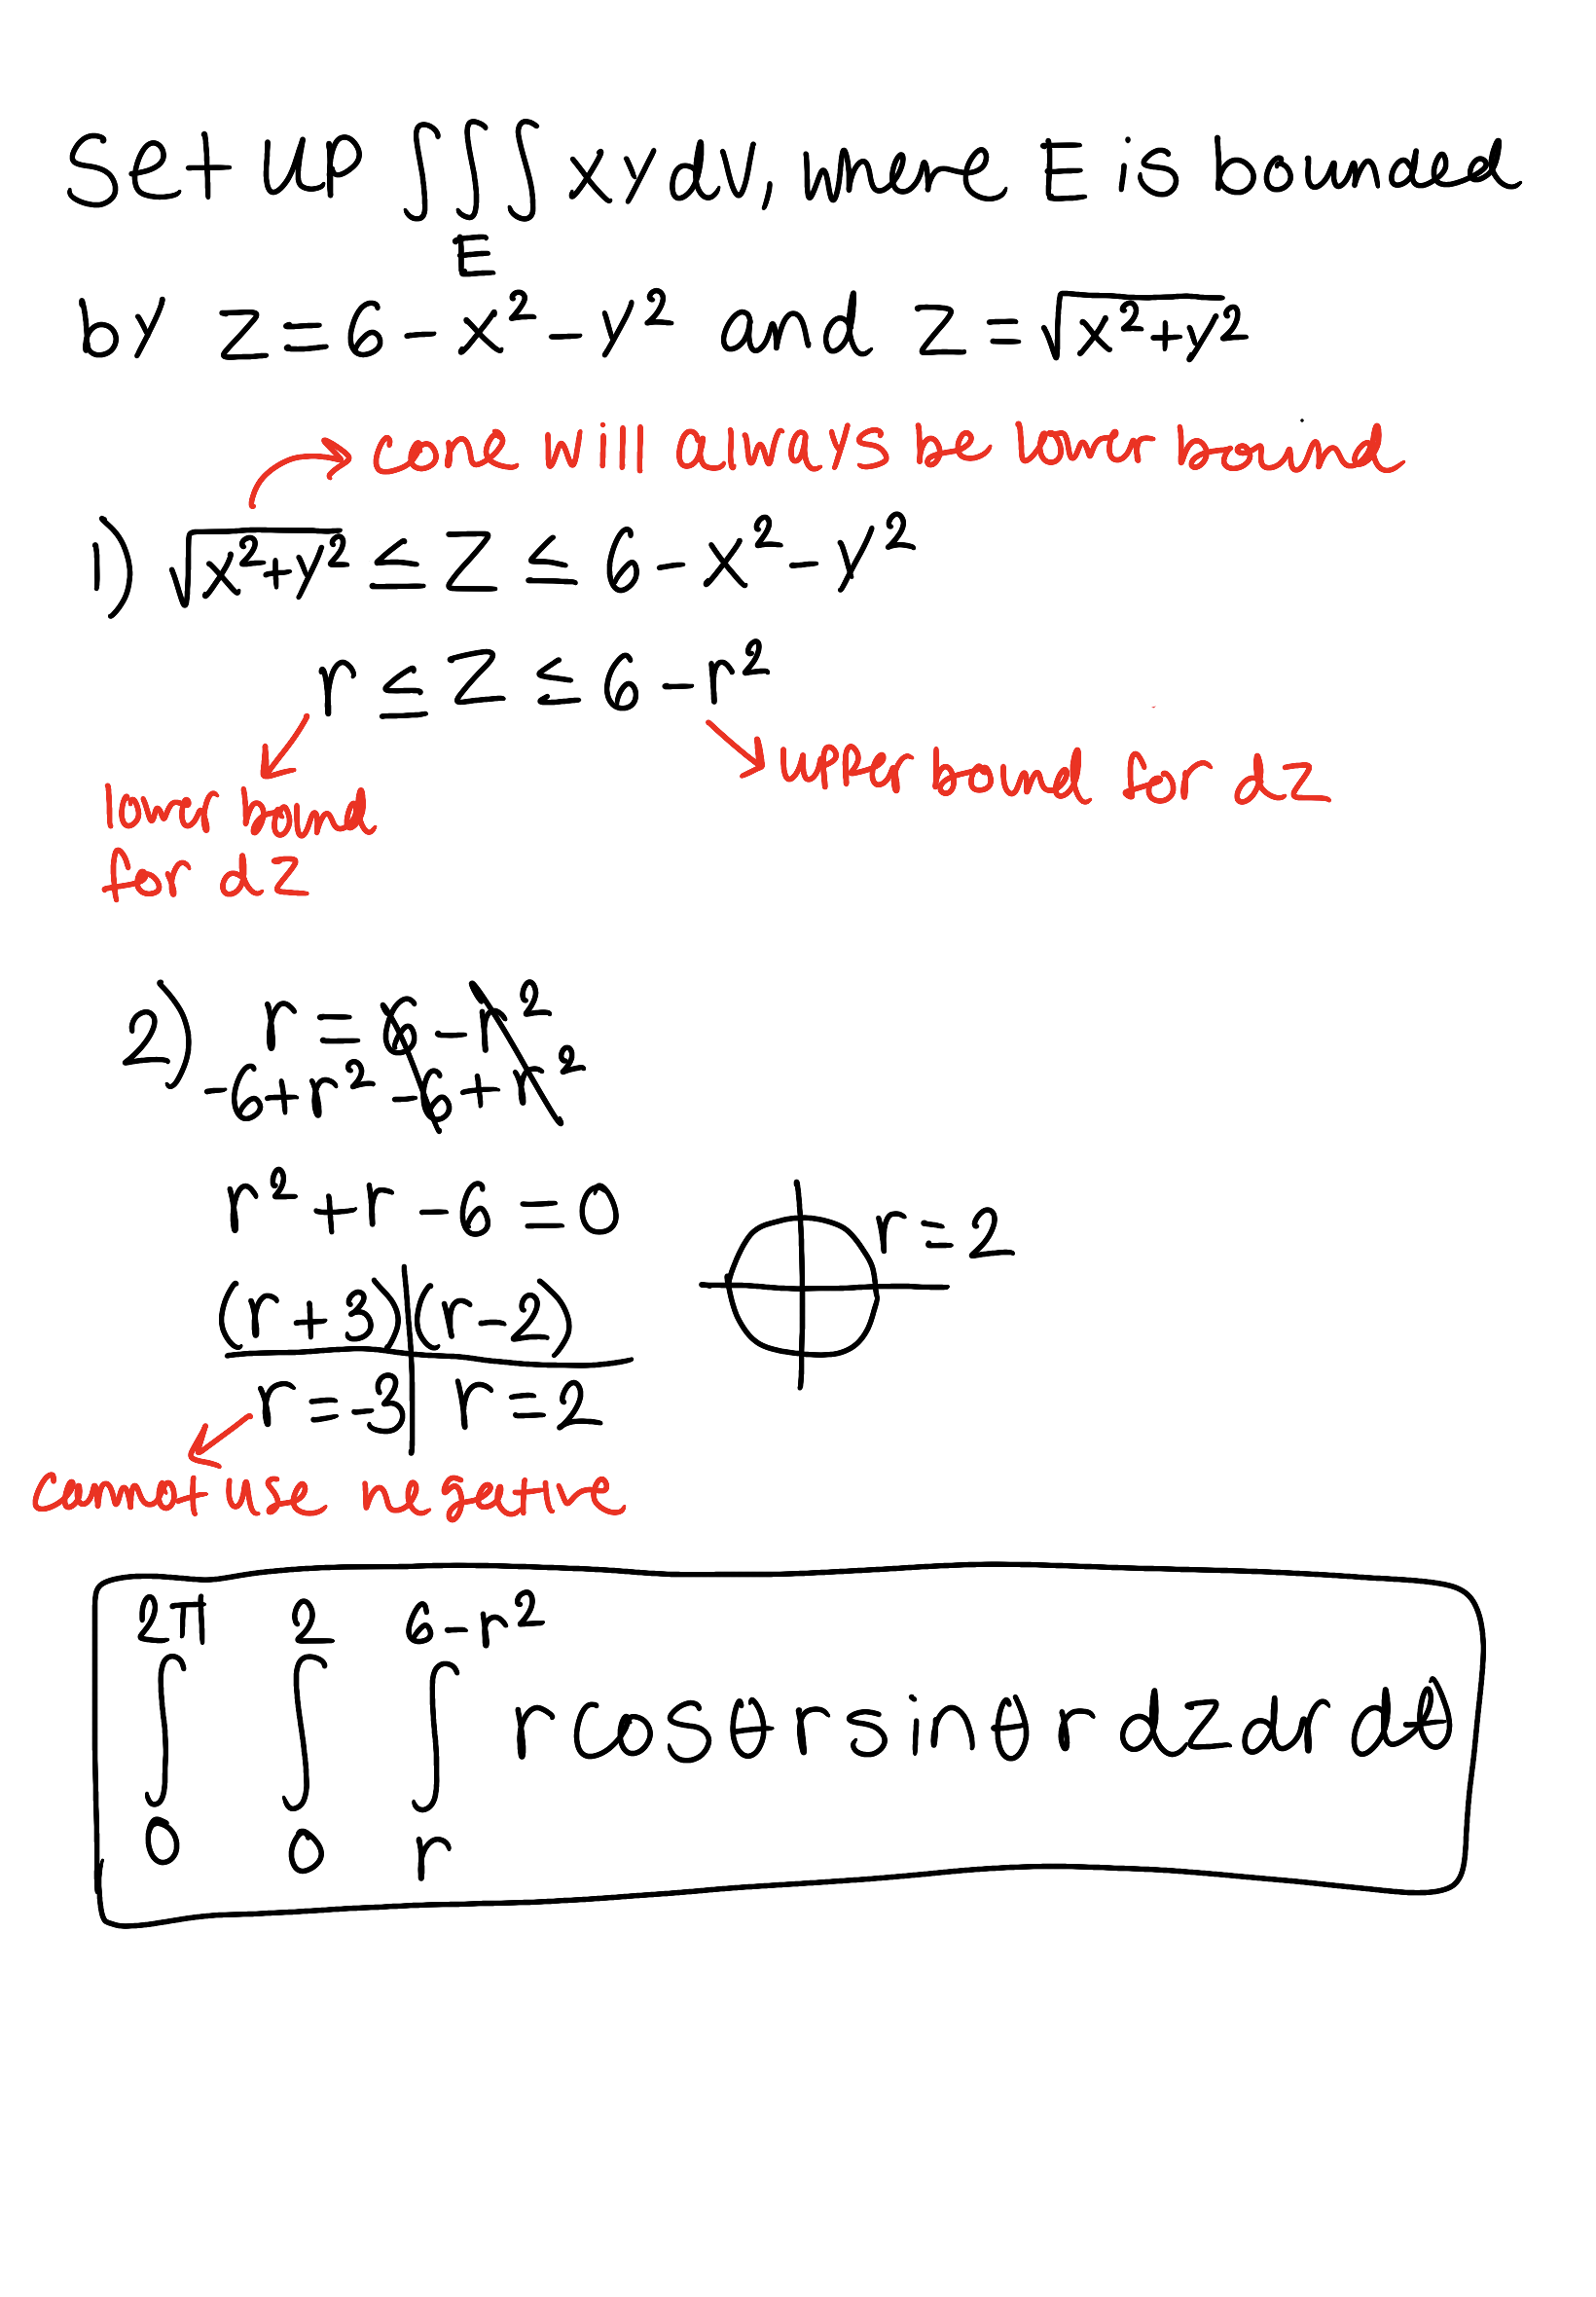 Set up ∫∫∫ xydV, where E is bounded
E
by z = 6 - x² - y² and z = √x²+y²
cone will always be lower bound
1) √x²+y² ≤ z ≤ 6 - x² - y²
r ≤ z ≤ 6 - r²
upper bound for dz
lower bound
for dz
2) r = 6 - r²
-6+r² -6+r²
r² + r - 6 = 0
r = 2
(r + 3) (r - 2)
r = -3 r = 2
cannot use negative
2π 2 6-r²
∫ ∫ ∫ r cosθ r sinθ r dz dr dθ
0 0 r